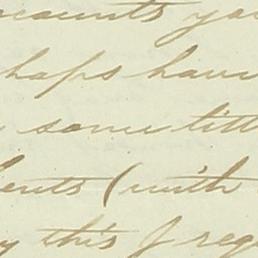 accounts you
haps have
some litt
ents (with
y this I reg